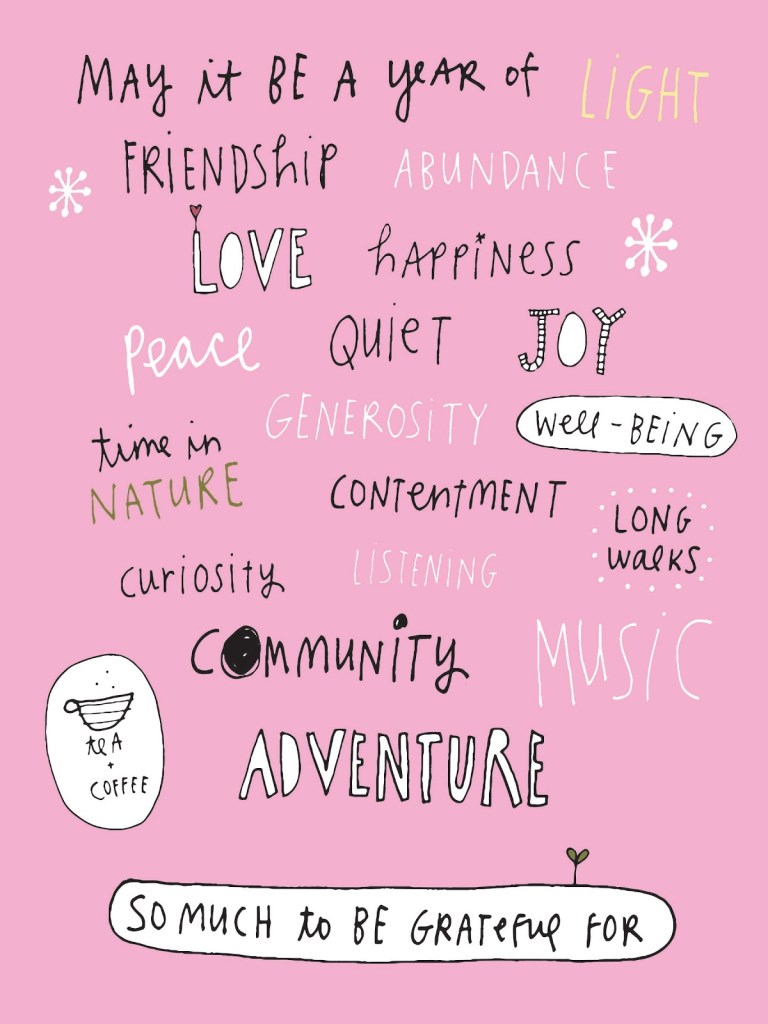 MAY it BE A yeAR of LiGHT
FRiENDShiP ABUNDANCE
LOVE hAPPiNESS
Peace QUieT JOY
GENEROSiTY well-BEiNG
time in
NATURE
CONTentMENT
LONG
walks
curiosity LiSTENiNG
COMMUNiTy MUSiC
teA
+
COFFEE
ADVENTURE
SO MUCH to BE GRATefuL FOR